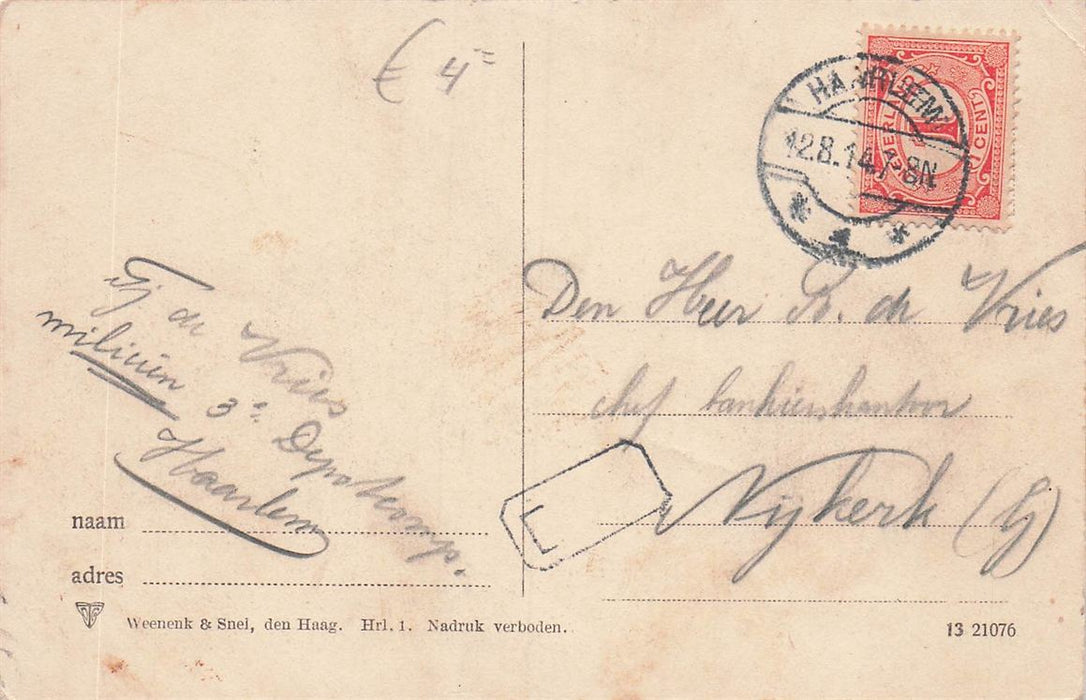 € 4=
HAARLEM
12.8.14 7-8N
1
CENT
Den Heer B. de Vries
chef bankierskantoor
Nijkerk (G)
E
Tj de Vries
milicien
3e Depotkomp.
Haarlem
naam
adres
Weenenk & Snel, den Haag. Hrl. 1. Nadruk verboden.
13 21076